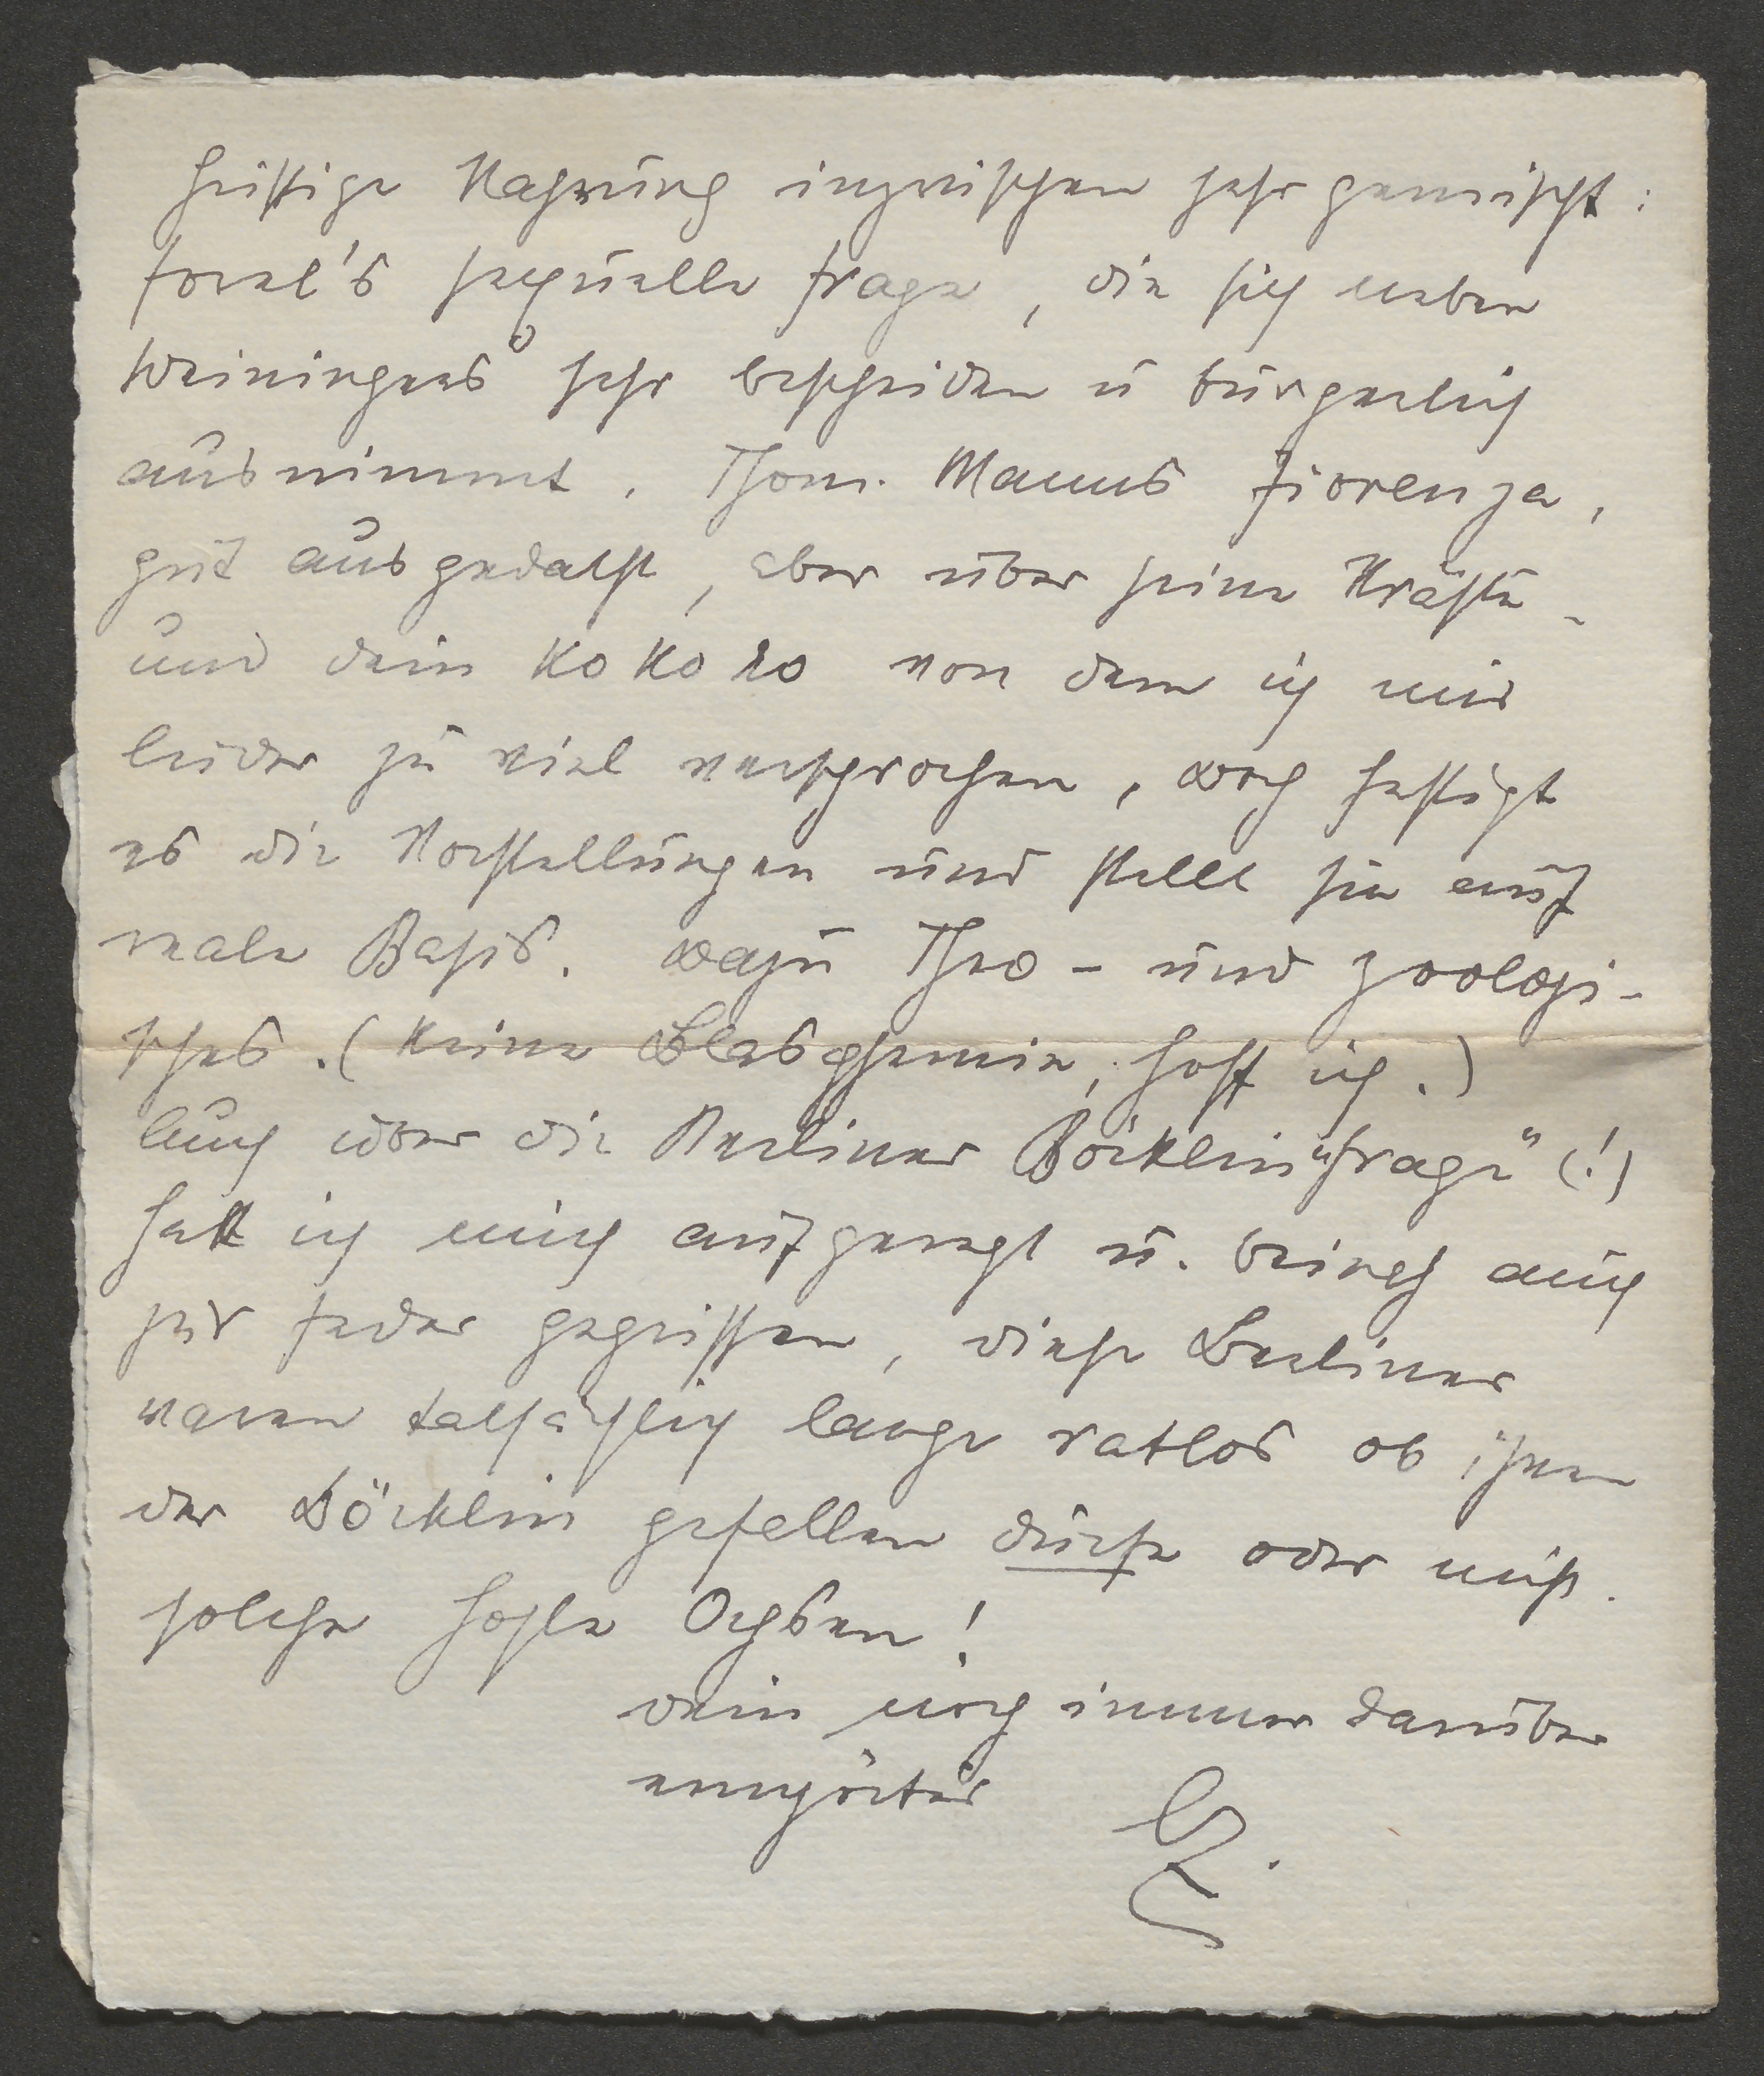 Geistige Nahrung inzwischen sehr gemischt:
Forel's sexuelle Frage, die sich neben
Weiningers sehr bescheiden u bürgerlich
ausnimmt. Thom. Manns Fiorenza,
gut ausgedacht, aber über seine Kräfte -
und dein Kokoro von dem ich mir
leider zu viel versprochen, doch festigt
es die Vorstellungen und stellt sie auf
reale Basis. dazu Theo- und Zoologi-
sches. (Keine Blasphemie, hoff ich.)
Auch über die Berliner Böcklin "frage" (!)
hatt ich mich aufgeregt u. beinah auch
zur Feder gegriffen, diese Berliner
waren tatsächlich lange ratlos ob ihnen
der Böcklin gefallen dürfe oder nicht.
solche hohle Ochsen!
dein noch immer darüber
empörter